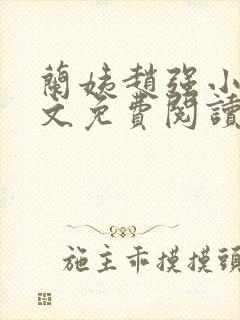 蘭姨趙強小
文免費閱讀
施主乖摸摸頭